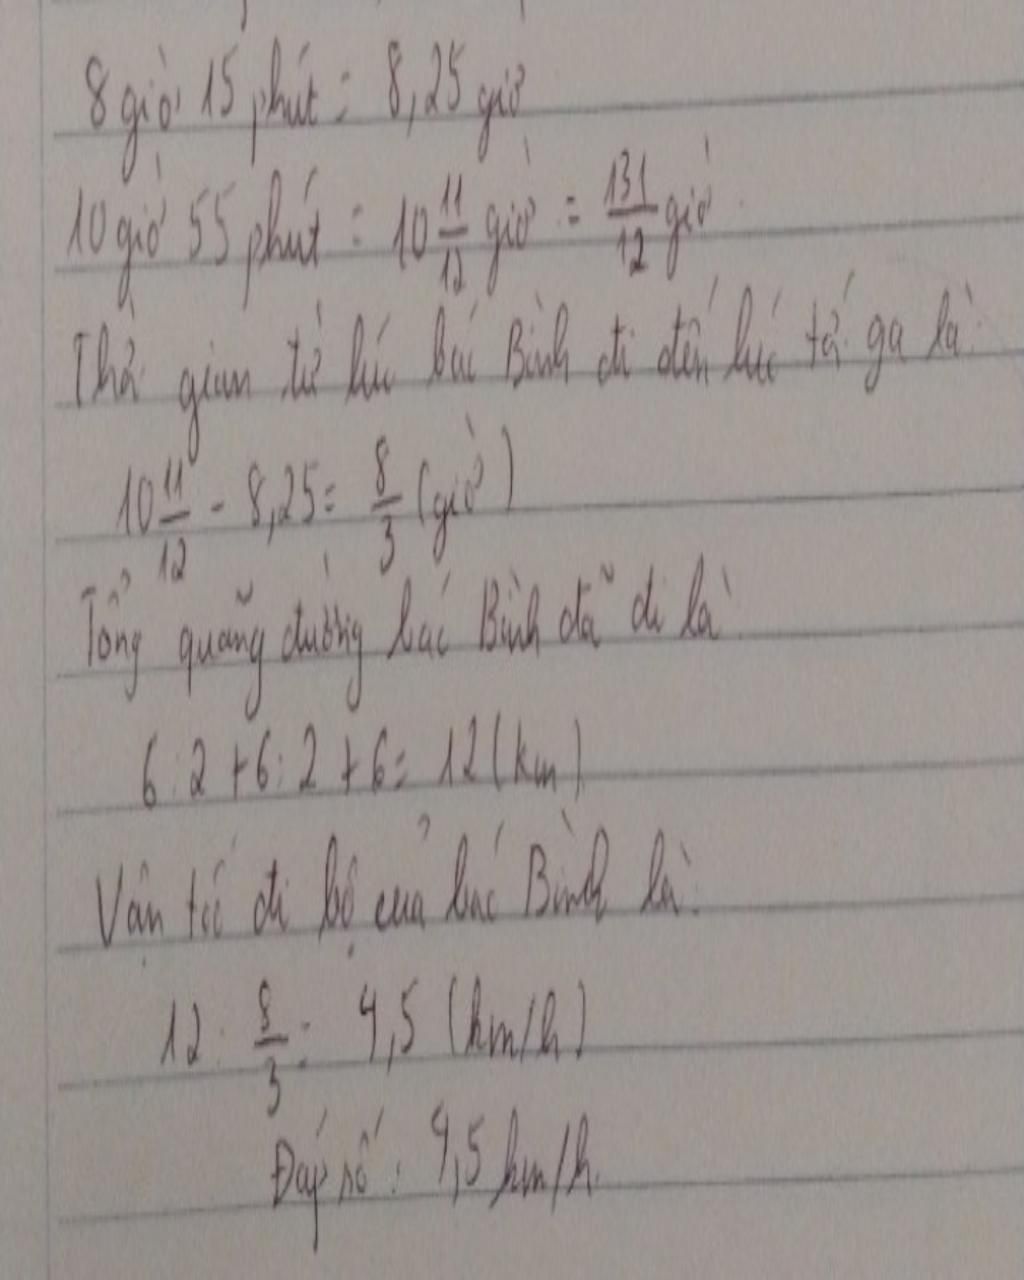 8 giờ 15 phút = 8,25 giờ
10 giờ 55 phút = 10 11/12 giờ = 131/12 giờ
Thời gian từ lúc bác Bình đi đến lúc tới ga là:
10 11/12 - 8,25 = 8/3 (giờ)
Tổng quãng đường bác Bình đã đi là
6 : 2 + 6 : 2 + 6 = 12 (km)
Vận tốc đi bộ của bác Bình là:
12 : 8/3 = 4,5 (km/h)
Đáp số : 4,5 km/h.